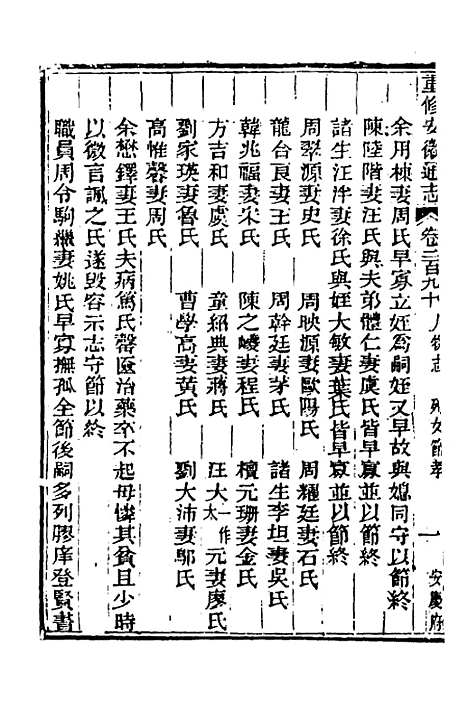 重修安徽通志 卷二百九十 人物志 列女節孝 一 安慶府
余用棟妻周氏早寡立姪爲嗣姪又早故與媳同守以節終
陳陸階妻汪氏與夫弟體仁妻虞氏皆早寡並以節終
諸生江泮妻徐氏與姪大敏妻葉氏皆早寡並以節終
周翠源妻史氏 周映源妻歐陽氏 周耀廷妻石氏
龍台良妻王氏 周幹廷妻茅氏 諸生李坦妻吳氏
韓兆福妻朱氏 陳之巘妻程氏 檀元珊妻金氏
方吉和妻虞氏 童紹典妻蔣氏 汪大一作太元妻廖氏
劉家瑛妻魯氏 曹學高妻黃氏 劉大沛妻鄔氏
高惟馨妻周氏
余懋鐸妻王氏夫病篤氏罄匳治藥卒不起母憐其貧且少時
以微言諷之氏遂毀容示志守節以終
職員周令駒繼妻姚氏早寡撫孤全節後嗣多列膠庠登賢書